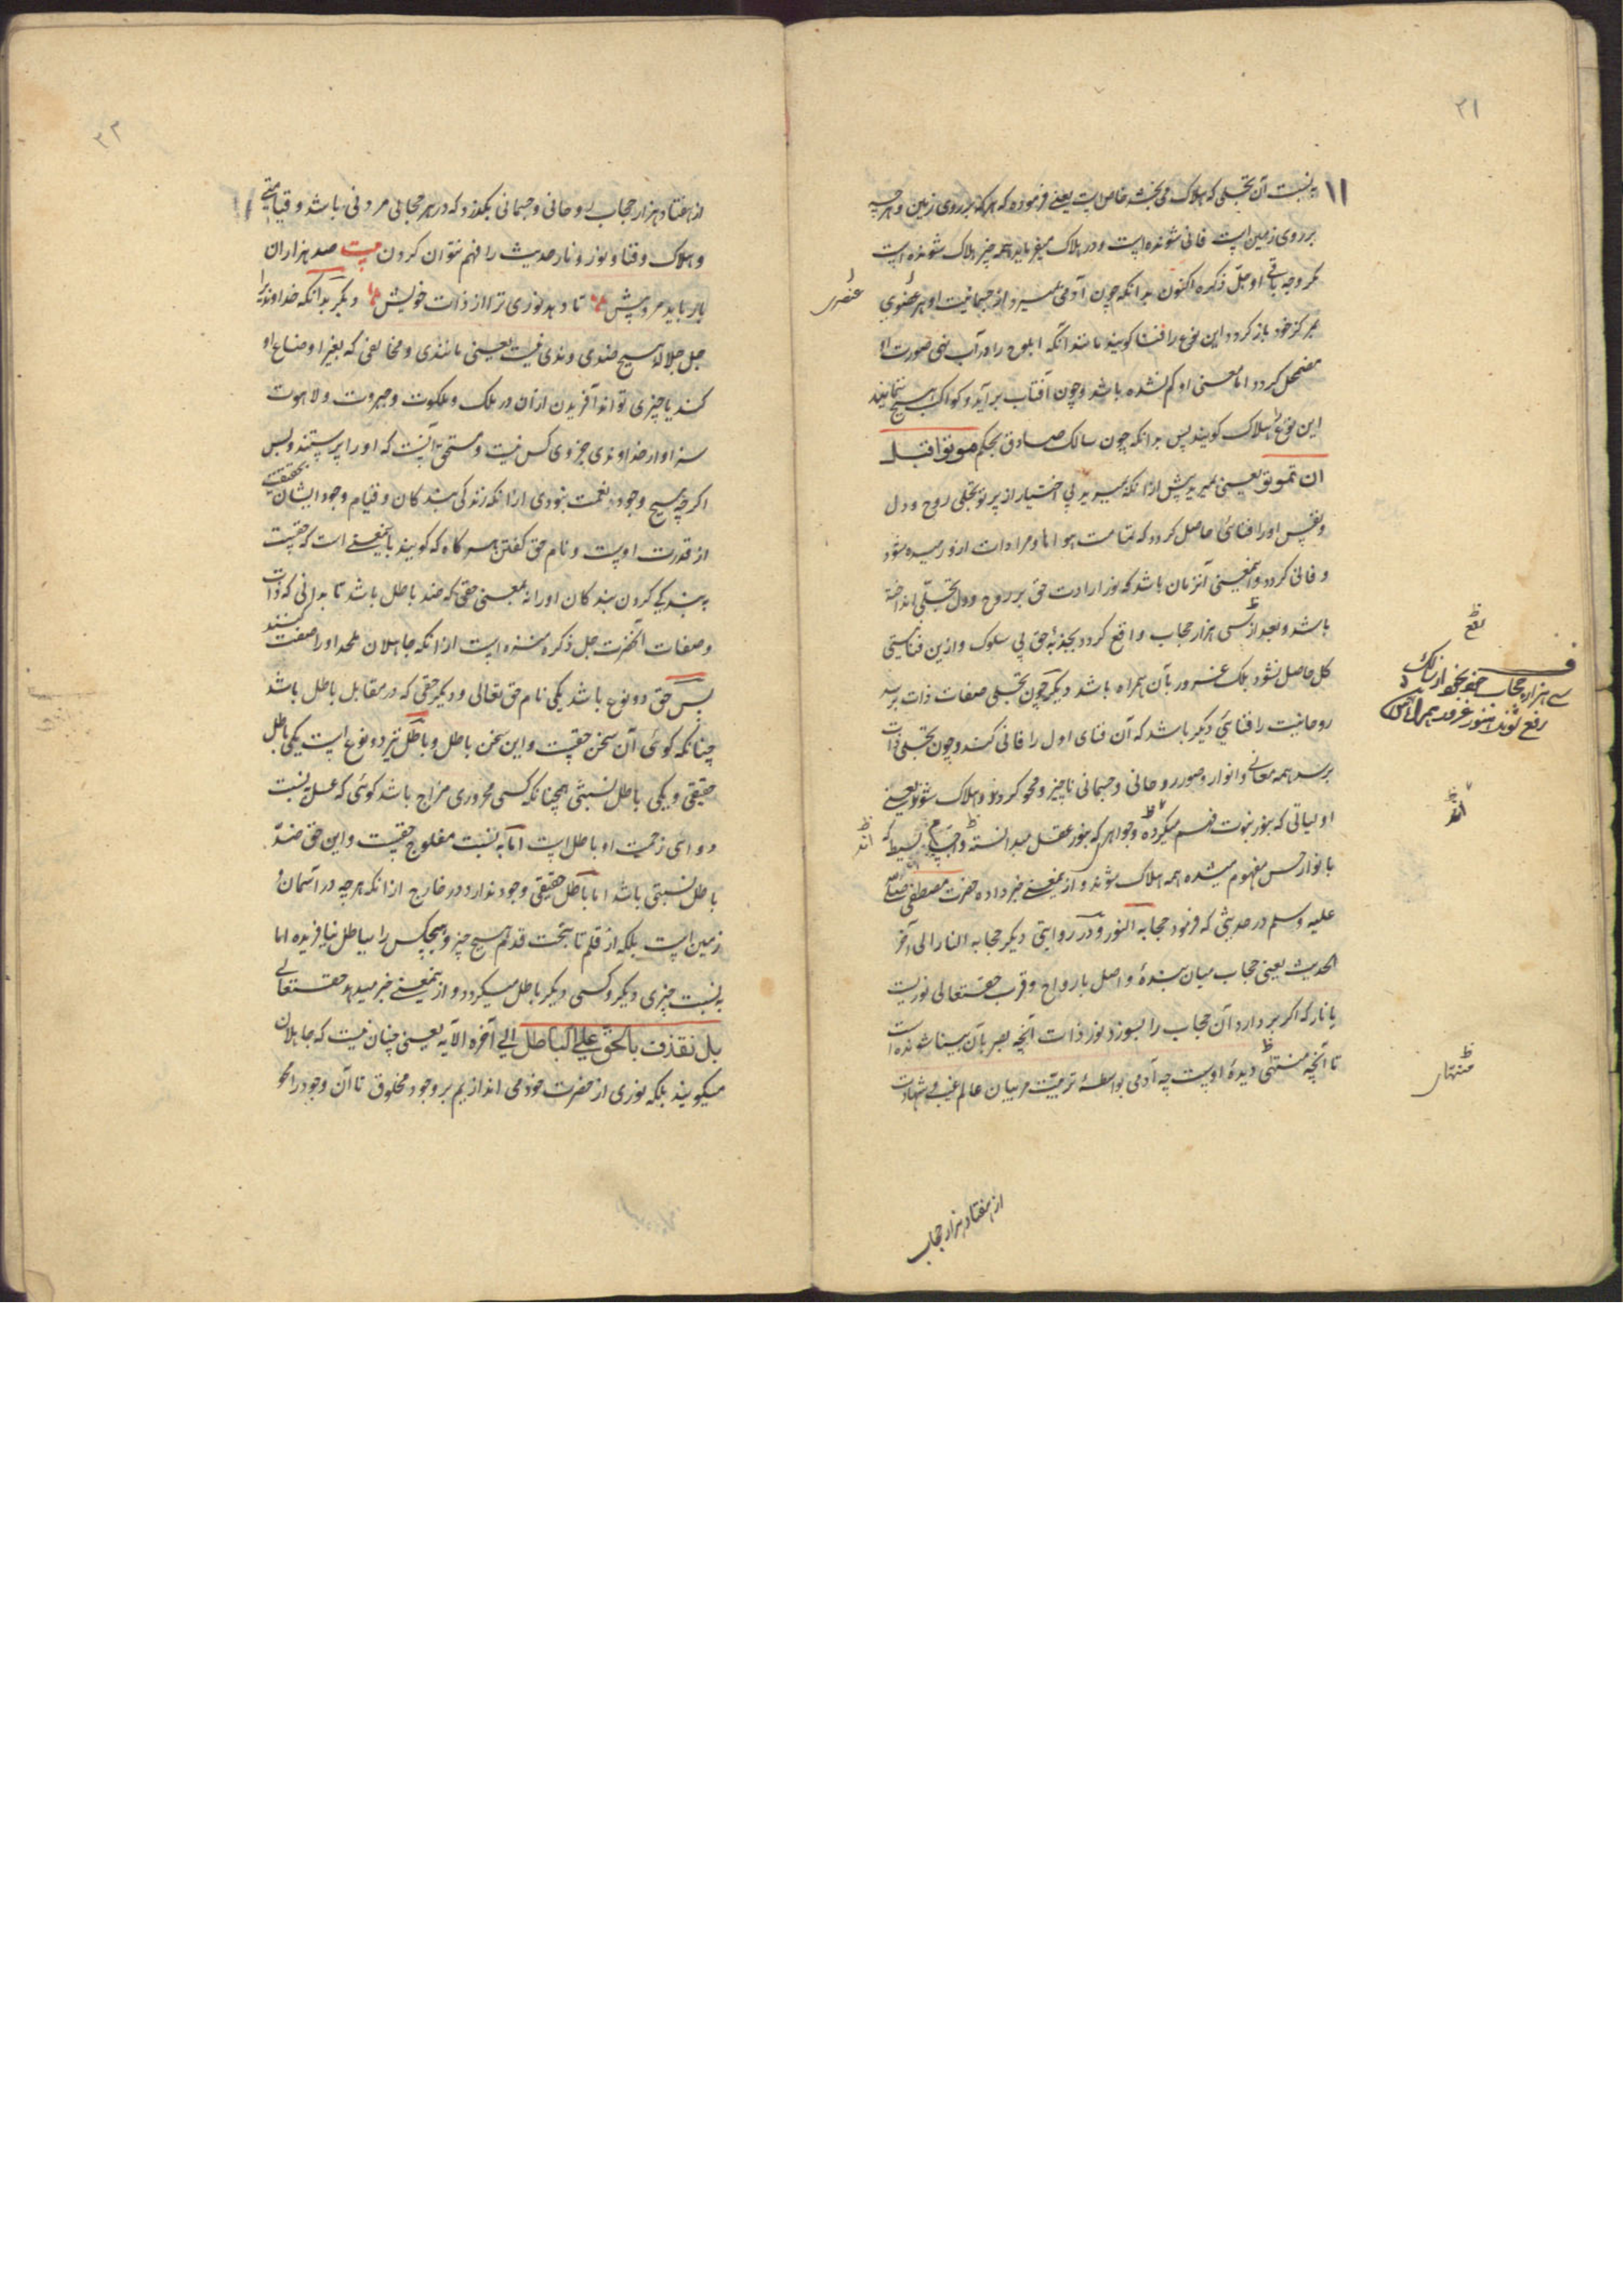 ۲۱
بنسبت آن تجلی که هلاک می بخشد خاص است یعنی فرموده که هر که بر روی زمین و هر چه
بر روی زمین است فانی شونده است و در هلاک میفرماید همه چیز هلاک شونده است
مگر وجه باقی او جل ذکره اکنون بدانکه چون آدمی بمیرد از جسمانیت او هر عضوی
عنصری
بمرکز خود باز گردد این نوع را فنا گویند مانند آنکه ابلوج را در آب نهی صورت او
مضمحل گردد اما معنی او گم نشده باشد و چون آفتاب برآید و کواکب هیچ ننمایند
این نوع را هلاک گویند پس بدانکه چون سالک صادق بحکم موتوا قبل
ان تموتوا یعنی بمیرید پیش از آنکه بمیرید بی اختیار از پرتو تجلی روح و دل
و نفس او را فنائی حاصل گردد که تمامت هوا ها و مرادات ازو رمیده شود
و فانی گردد و اینمعنی آنزمان باشد که نور ارادت حق بر روح و دل تجلی انداخته
باشد و بعد از سی هزار حجاب واقع گردد بجذبهٔ حق بی سلوک و ازین فنا نیستی
رفع
کل حاصل نشود بلک غرور بآن همراه باشد دیگر چون تجلی صفات ذات برسد
سی هزار حجاب
رفع شوند هنوز غرور همراه است
روحانیت را فنائی دیگر باشد که آن فنای اول را فانی کند و چون تجلی ذات
برسد همه معانی و انوار و صور روحانی و جسمانی ناچیز و محو گردند و هلاک شوند یعنی
اولیاتی که بنور نبوت فهم میکرده و جواهری که بنور عقل میدانسته و بسیط که
اند
اند
با نوار حس مفهوم میشده همه هلاک شوند و از ینمعنی خبر داده حضرت مصطفی صلی الله
علیه و سلم در حدیثی که فرمود حجابه النور و در روایتی دیگر حجابه النار الی آخر
الحدیث یعنی حجاب میان بندهٔ واصل بارواح و قرب حقتعالی نوریست
یا نار که اگر بردارد آن حجاب را بسوزد نور ذات آنچه بصر بآن بینا شونده است
تا آنچه منتهی دیدهٔ اوست چه آدمی بواسطهٔ تربیت مربیان عالم غیب و شهادت
منتهای
از هفتاد هزار حجاب
۲۲
از هفتاد هزار حجاب روحانی و جسمانی بگذرد که در هر حجابی مردنی باشد و قیامتی
و هلاک و فنا و نور و نار حدیث را فهم نتوان کردن بیت صد هزاران
بار باید مرد پیش تا دهد نوری ترا از ذات خویش دیگر بدانکه خداوند را
جل جلاله هیچ ضدی و ندی نیست یعنی مانندی و مخالفی که بغیر اوضاع او
کند یا چیزی تواند آفریدن از آن در ملک و ملکوت و جبروت و لاهوت
سزاوار خداوندی جز وی کس نیست و مستحق آنست که او را پرستند و بس
اگرچه هیچ وجود نعمت نبودی از آنکه زندگی بندگان و قیام وجود ایشان بحقیقت
از قدرت اوست و نام حق گفتن هر گاه که گویند باینمعنی است که حقیست
ببندگی کردن بندگان او را نه بمعنی حقی که ضد باطل باشد تا بدانی که ذات
و صفات آنحضرت جل ذکره منزه است از آنکه جاهلان ملحد او را صفت کنند
پس حق دو نوع باشد یکی نام حق تعالی و دیگر حقی که در مقابل باطل باشد
چنانکه گوئی آن سخن حقست و این سخن باطل و باطل نیز دو نوع است یکی باطل
حقیقی و یکی باطل نسبتی همچنانکه کسی محروری مزاج باشد گوئی که عسل بنسبت
دوای زحمت او باطل است اما به نسبت مفلوج حقست و این حق ضد
باطل نسبتی باشد اما باطل حقیقی وجود ندارد در خارج از آنکه هرچه در آسمان و
زمین است بلکه از قلم تا بتحت قدم هیچ چیز و هیچکس را بباطل نیافریده اما
به نسبت چیزی دیگر و کسی دیگر باطل میگردد و از ینمعنی خبر میدهد حقتعالی
بل نقذف بالحق علی الباطل الی آخره الآیه یعنی چنان نیست که جاهلان
میگویند بلکه نوری از حضرت خود می اندازیم بر وجود مخلوق تا آن وجود را محو